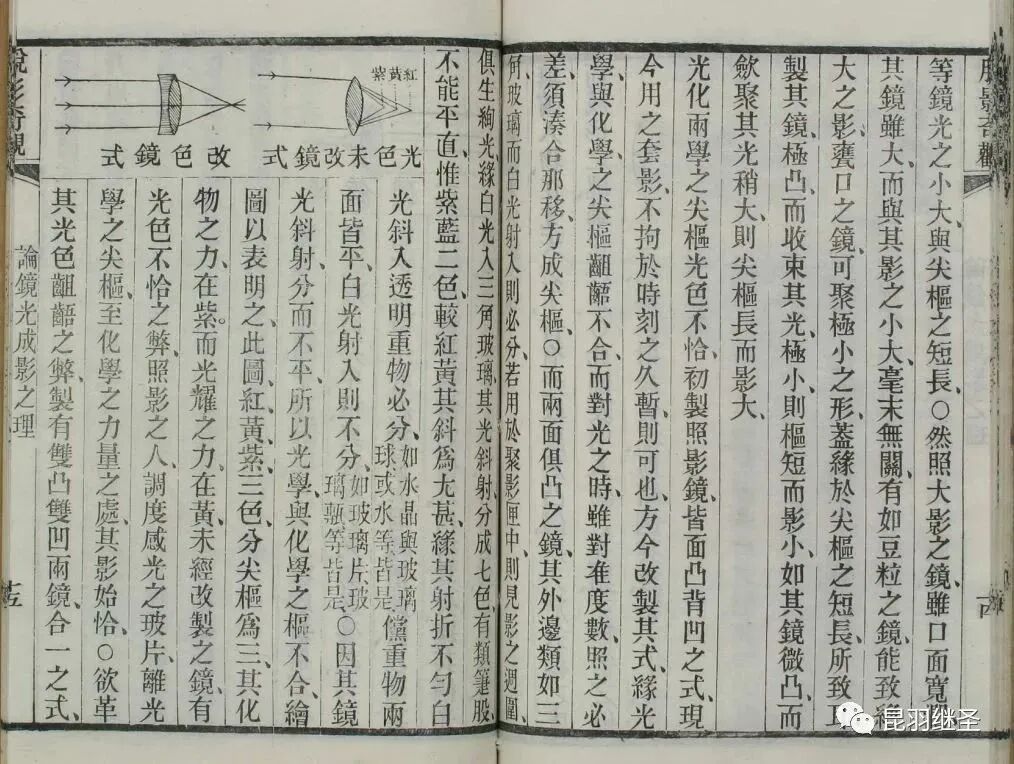 等鏡光之小大、與尖樞之短長、○然照大影之鏡、雖口面寬
其鏡雖大、而與其影之小大、毫末無關、有如豆粒之鏡、能致
大之影、甕口之鏡、可聚極小之形、蓋緣於尖樞之短長、所致
製其鏡極凸、而收束其光極小、則樞短而影小、如其鏡微凸、而
斂聚其光稍大、則尖樞長而影大、
光化兩學之尖樞光色不恰、初製照影鏡、皆面凸背凹之式、現
今用之套影、不拘於時刻之久暫、則可也、方今改製其式、緣光
學與化學之尖樞齟齬不合、而對光之時、雖對准度數、照之必
差、須湊合那移、方成尖樞、○而兩面俱凸之鏡、其外邊類如三
何玻璃、而白光射入則必分、若用於聚影匣中、則見影之週圍、
俱生絢光、緣白光入三角玻璃、其光斜射、分成七色、有類箑股、
不能平直、惟紫藍二色、較紅黃其斜爲尤甚、緣其射折不勻、白
光斜入透明重物必分、如水晶與玻璃球或水等皆是、儻重物兩
面皆平、白光射入則不分、如玻璃片玻璃甎等皆是、○因其鏡
光斜射、分而不平、所以光學與化學之樞不合、繪
圖以表明之、此圖紅黃紫三色、分尖樞爲三、其化
物之力、在紫。而光耀之力、在黃、未經改製之鏡、有
光色不恰之弊、照影之人、調度感光之玻片、離光
學之尖樞、至化學之力量之處、其影始恰、○欲革
其光色齟齬之弊、製有雙凸雙凹兩鏡、合一之式、
紅黃紫
光色未改鏡式
改色鏡式
脫影奇觀
論鏡光成影之理
十五
昆羽继圣